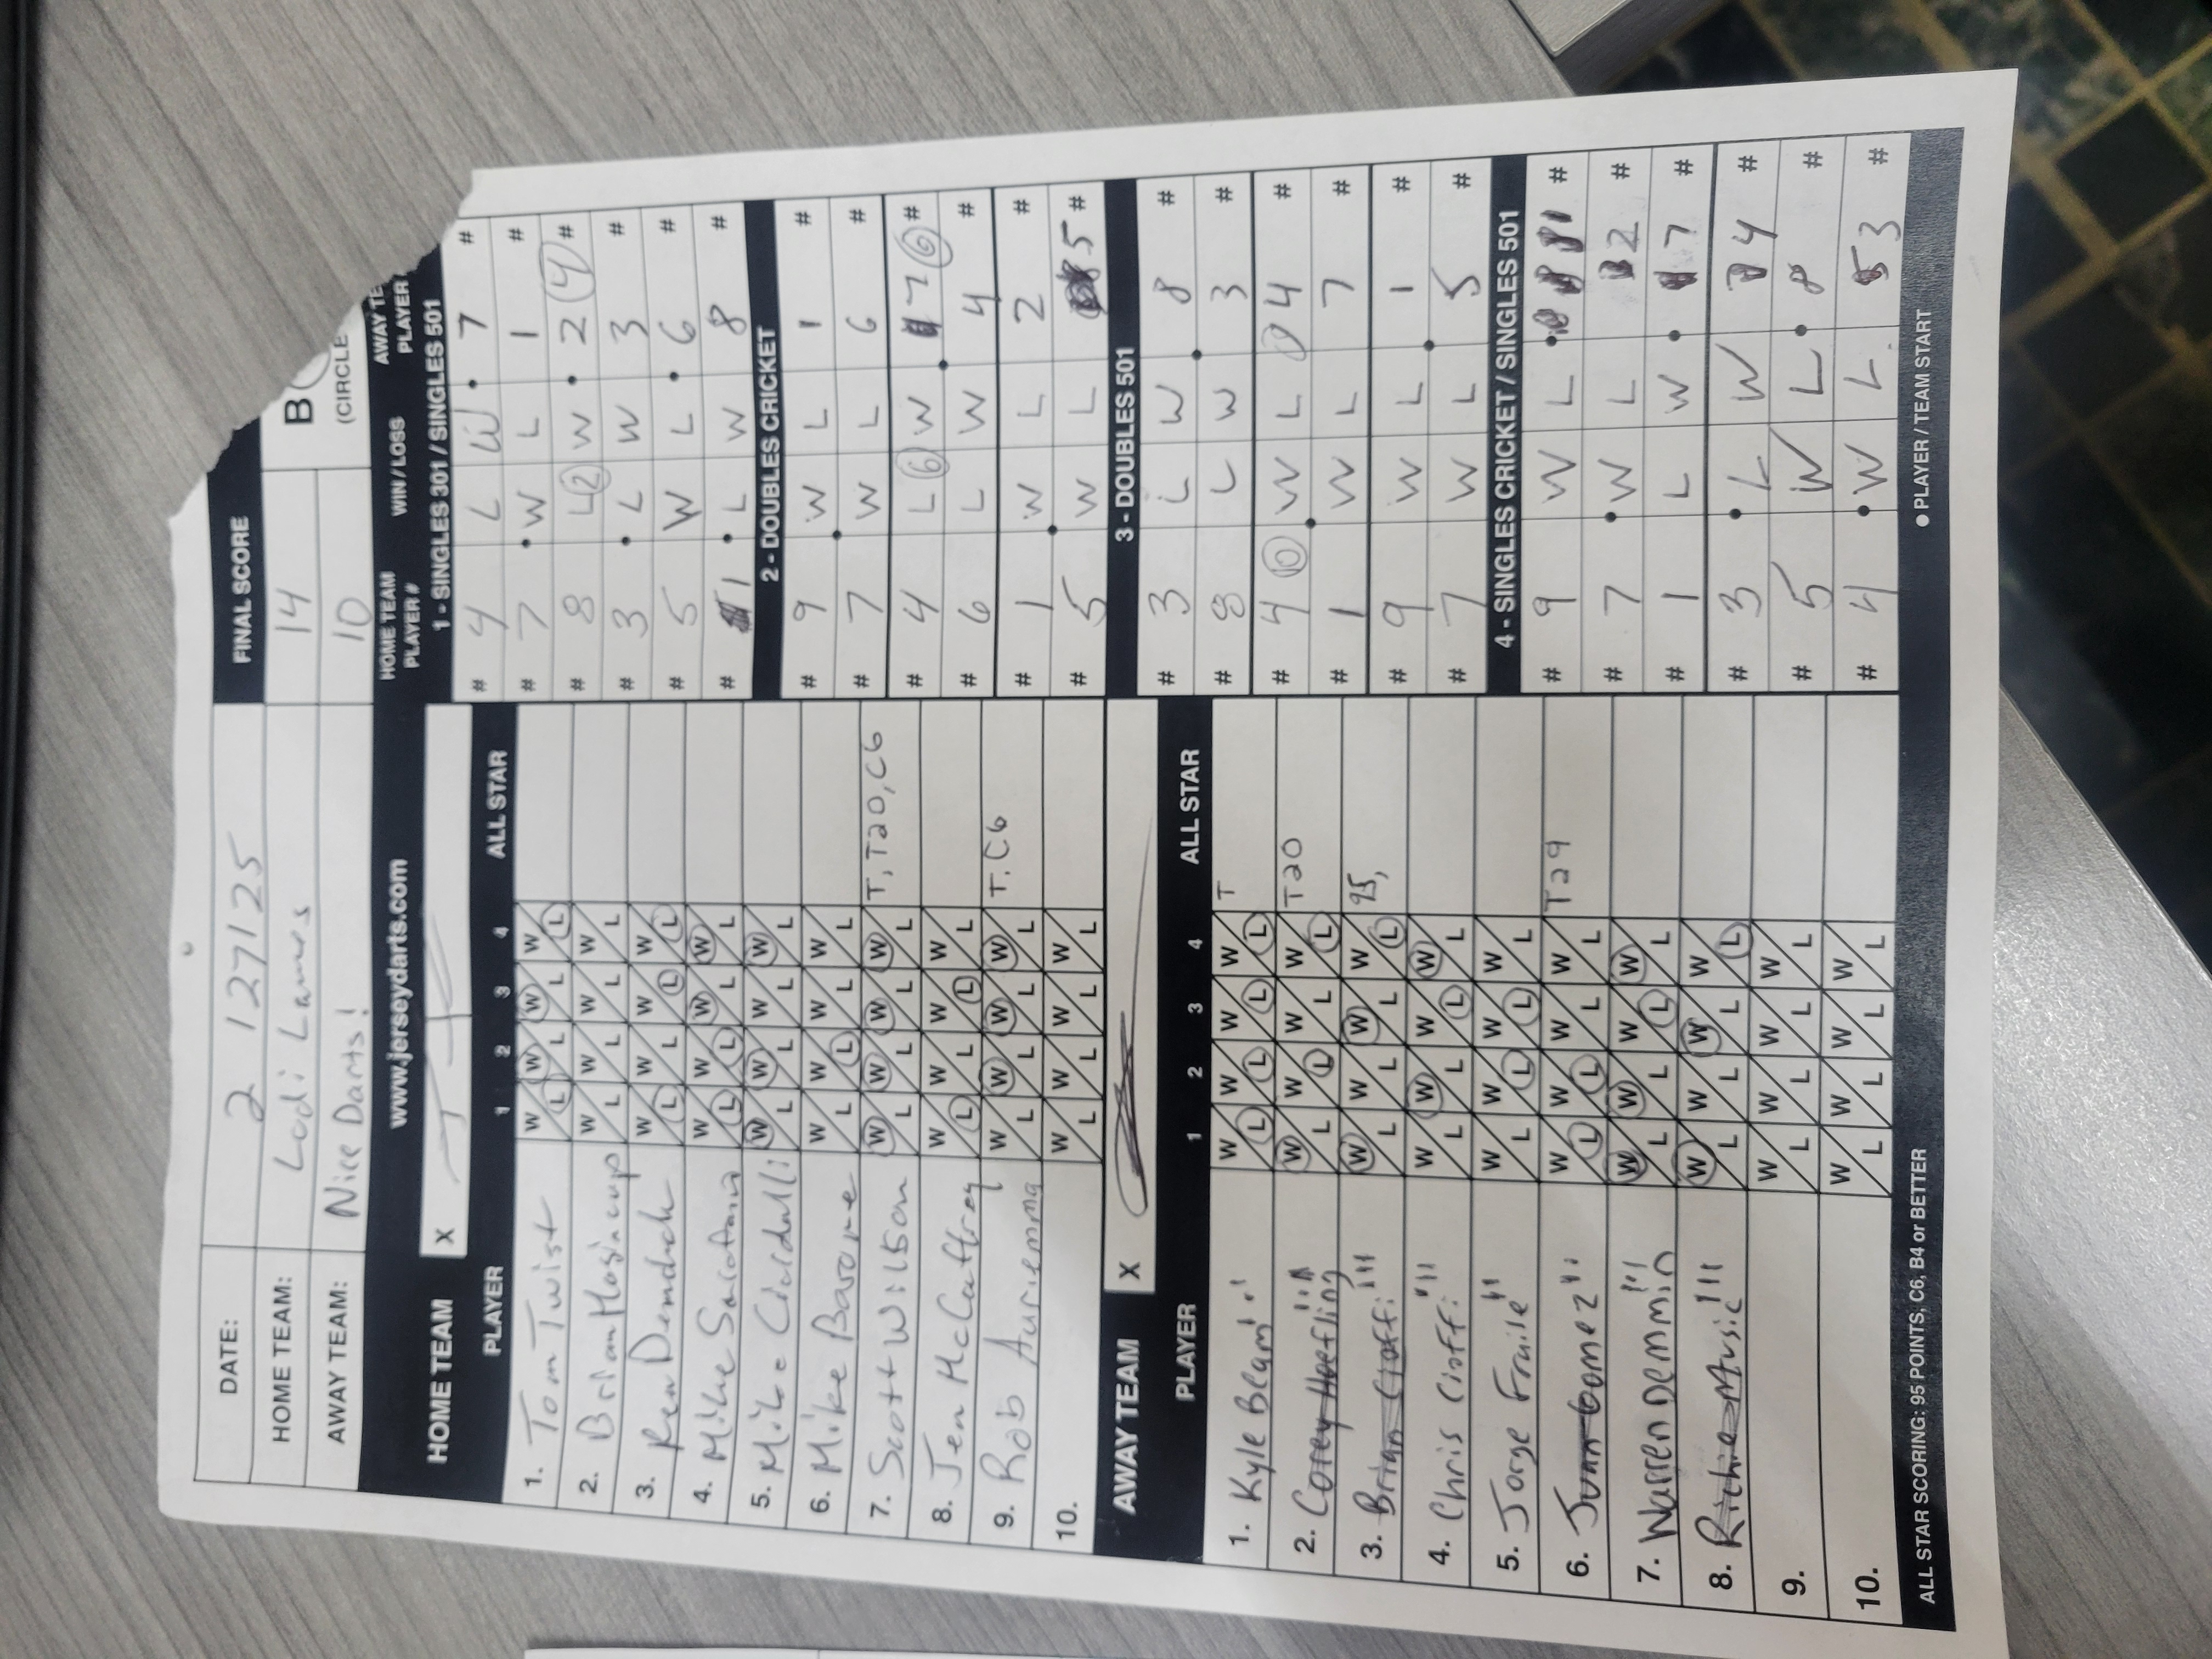 DATE: 2 / 27 / 25
FINAL SCORE
HOME TEAM: Lodi Lanes 14
AWAY TEAM: Nice Darts! 10
B
(CIRCLE
www.jerseydarts.com
HOME TEAM X
PLAYER 1 2 3 4 ALL STAR
1. Tom Twist W L W L W L W L
2. W L W L W L W L
3. W L W L W L W L
4. Mike W L W L W L W L
5. Mike W L W L W L W L
6. Mike Barone W L W L W L W L
7. Scott Wilson W L W L W L W L T, T20, C6
8. Jen McCaffrey W L W L W L W L
9. Rob Auriemma W L W L W L W L T. C6
10. W L W L W L W L
AWAY TEAM X
PLAYER 1 2 3 4 ALL STAR
1. Kyle Beam W L W L W L W L T
2. Corey Hoefling W L W L W L W L T20
3. Brian Cioffi W L W L W L W L 95,
4. Chris Cioffi W L W L W L W L
5. Jorge Fraile W L W L W L W L
6. Juan Gomez W L W L W L W L T29
7. Warren Demmin W L W L W L W L
8. Richie Music W L W L W L W L
9. W L W L W L W L
10. W L W L W L W L
ALL STAR SCORING: 95 POINTS, C6, B4 or BETTER
HOME TEAM PLAYER # WIN / LOSS AWAY TE PLAYER
1 - SINGLES 301 / SINGLES 501
# 4 L W 7 #
# 7 W L 1 #
# 8 L 2 W 2 4 #
# 3 L W 3 #
# 5 W L 6 #
# 1 L W 8 #
2 - DOUBLES CRICKET
# 9 W L 1 #
# 7 W L 6 #
# 4 L 6 W 7 6 #
# 6 L W 4 #
# 1 W L 2 #
# 5 W L 5 #
3 - DOUBLES 501
# 3 L W 8 #
# 8 L W 3 #
# 4 10 W L 4 #
# 1 W L 7 #
# 9 W L 1 #
# 7 W L 5 #
4 - SINGLES CRICKET / SINGLES 501
# 9 W L 1 #
# 7 W L 2 #
# 1 L W 7 #
# 3 L W 4 #
# 5 W L 8 #
# 4 W L 3 #
● PLAYER / TEAM START